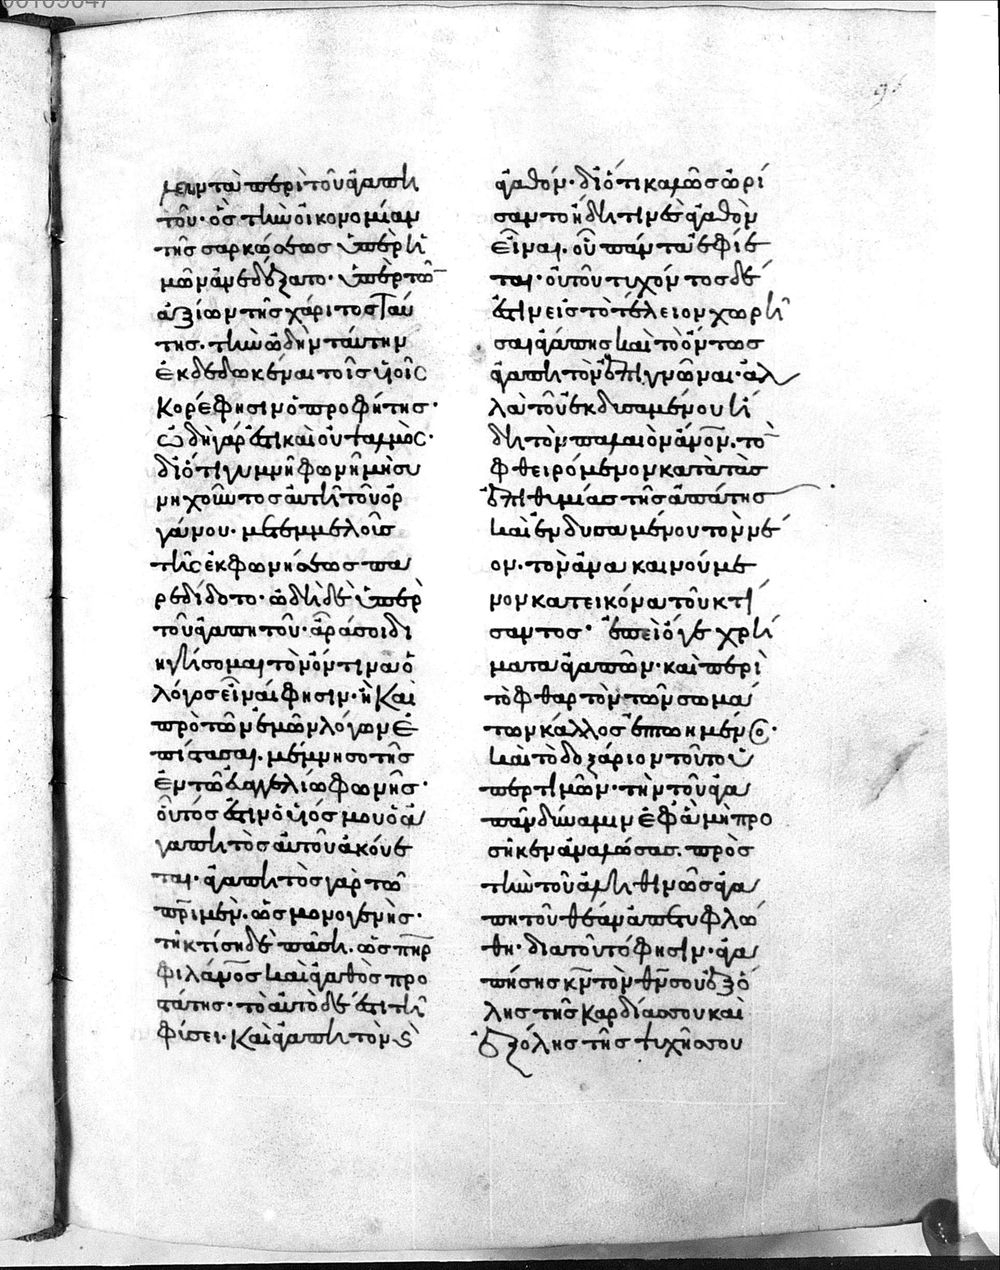 μειν τὰ περὶ τοῦ ἀγαπη
τοῦ· ὃς τὴν οἰκονομίαν
τῆς σαρκώσεως ὑπὲρ ἡ
μῶν ἀνεδέξατο· ὑπὲρ τῶ
ἀξίων τῆς χάριτος ταύ
της. τὴν ὠδὴν ταύτην
ἐκδεδωκέναι τοῖς υἱοῖς
Κορέ φησιν ὁ προφήτης·
ὠδὴ γάρ ἐστι καὶ οὐ ψαλμὸς·
διότι γυμνῆ φωνῆ μὴ συ
νηχοῦντος αὐτῆ τοῦ ὀρ
γάνου· μετ' ἐμμελοῦς
τῆς ἐκφωνήσεως πα
ρεδίδοτο· ὠδὴ δὲ ὑπὲρ
τοῦ ἀγαπητοῦ· ἆρά σοι δι
ηγήσομαι τὸν ὄντινα ὁ
λόγος εἶναί φησιν· ἢ καὶ
πρὸ τῶν ἐμῶν λόγων ἐ
πίστασαι. μέμνησο τῆς
ἐν τῶ εὐαγγελίω φωνῆς·
οὗτός ἐστιν ὁ υἱός μου ὁ ἀ
γαπητὸς αὐτοῦ ἀκούε
ται· ἀγαπητὸς γὰρ τῶ
πρι μὲν. ὡς μονογενὴς·
τῆ κτίσει δὲ πάση. ὡς πηρ
φιλάνος καὶ ἀγαθὸς προ
στάτης· τὸ αὐτὸ δέ ἐστι τῆ
φύσει· καὶ ἀγαπητὸν καὶ
ἀγαθόν· διότι καλῶς ὡρί
σαντο ἤδη τινὲς ἀγαθὸν
εἶναι. οὗ πάντα ἐφίε
ται· οὐ τοῦ τυχόντος δέ
ἐστιν εἰς τὸ τέλειον χωρῆ
σαι ἀγάπης καὶ τὸ ὄντως
ἀγαπητὸν ἐπιγνῶναι· ἀλ
λὰ τοῦ ἐκδυσαμένου ἤ
δη τὸν παλαιὸν ἄνον. τὸ
φθειρόμενον κατὰ τὰς
ἐπιθυμίας τῆς ἀπάτης
καὶ ἐνδυσαμένου τὸν νέ
ον. τὸν ἀνακαινούμε
νον κατ' εἰκόνα τοῦ κτί
σαντος· ἐπεὶ ὅγε χρή
ματα ἀγαπῶν· καὶ περὶ
τὸ φθαρτὸν τῶν σωμά
των κάλλος ἐπτοημένος·
καὶ τὸ δοξάριον τοῦτο ὑ
περτιμῶν· τὴν τοῦ ἀγα
πᾶν δύναμιν ἐφ' ἃ μὴ προ
σῆκεν ἀναλώσας. πρὸς
τὴν τοῦ ἀληθινῶς ἀγα
πητοῦ θέαν ἀπετυφλώ
θη· διὰ τοῦτό φησιν· ἀγα
πήσης κν τὸν θν σου ἐξ ὅ
λης τῆς καρδίας σου καὶ
ἐξ ὅλης τῆς ψυχῆς σου